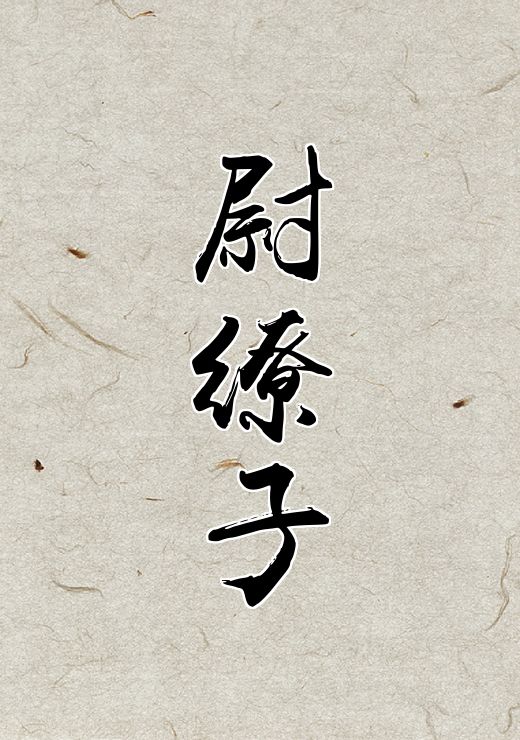 尉缭子